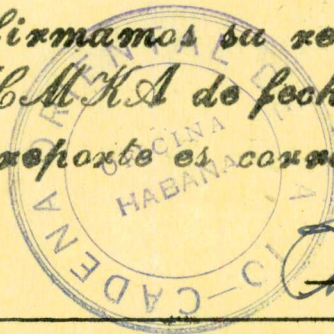 firmamos su re
CMKA de fech
reporte es corre
CADENA ORIENTAL DE RADIO
OFICINA
HABANA